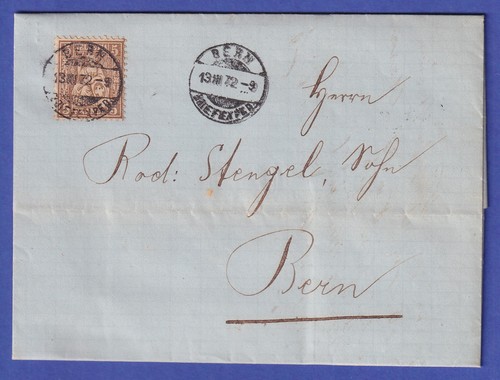 BERN
13 III 72-9
BRIEFEXPED.
BERN
13 III 72-9
BRIEFEXPED.
Herrn
Rod: Stengel, Sohn
Bern